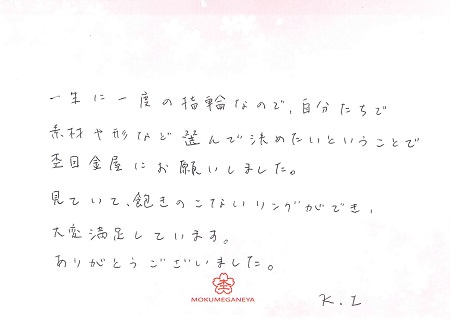 一生に一度の指輪なので、自分たちで
素材や形など選んで決めたいということで
杢目金屋にお願いしました。
見ていて、飽きのこないリングができ、
大変満足しています。
ありがとうございました。
杢
MOKUMEGANEYA
K.I